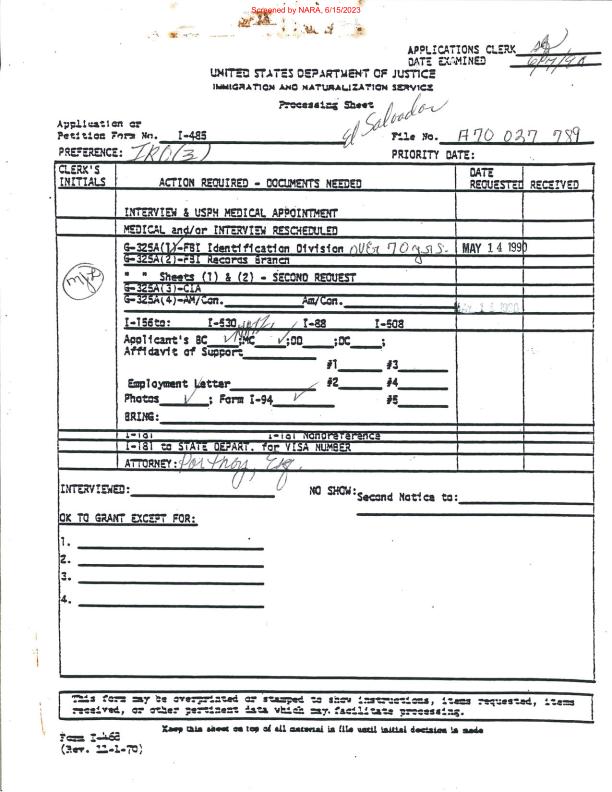 Screened by NARA, 6/15/2023
APPLICATIONS CLERK
DATE EXAMINED
UNITED STATES DEPARTMENT OF JUSTICE
IMMIGRATION AND NATURALIZATION SERVICE
Processing Sheet
El Salvador
Application or
Petition Form No. I-485 File No. A70 037 789
PREFERENCE: PRIORITY DATE:
CLERK'S INITIALS ACTION REQUIRED - DOCUMENTS NEEDED DATE REQUESTED RECEIVED
INTERVIEW & USPH MEDICAL APPOINTMENT
MEDICAL and/or INTERVIEW RESCHEDULED
G-325A(1)-FBI Identification Division over 70 yrs. MAY 14 1990
G-325A(2)-FBI Records Branch
" " Sheets (1) & (2) - SECOND REQUEST
G-325A(3)-CIA
G-325A(4)-AM/Con. Am/Con.
I-156to: I-530 I-88 I-508
Applicant's BC ✓;MC ✓;DD ;DC ;
Affidavit of Support
#1 #3
Employment Letter #2 #4
Photos ✓; Form I-94 ✓ #5
BRING:
I-181 I-181 Nonpreference
I-181 to STATE DEPART. for VISA NUMBER
ATTORNEY: Portnoy, Esq.
INTERVIEWED: NO SHOW: Second Notice to:
OK TO GRANT EXCEPT FOR:
1.
2.
3.
4.
This form may be overprinted or stamped to show instructions, items requested, items
received, or other pertinent data which may facilitate processing.
Keep this sheet on top of all material in file until initial decision is made
Form I-468
(Rev. 11-1-70)